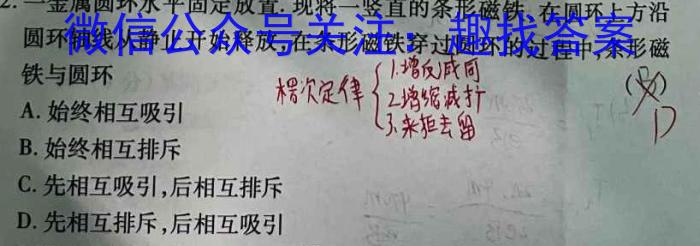 2. 一金属圆环水平固定放置. 现将一竖直的条形磁铁, 在圆环上方沿
圆环轴线从静止开始释放, 在条形磁铁穿过圆环的过程中, 条形磁
微信公众号关注：趣找答案
铁与圆环
(B)
D
A. 始终相互吸引
B. 始终相互排斥
C. 先相互吸引,后相互排斥
D. 先相互排斥,后相互吸引
楞次定律
1.增反减同
2.增缩减扩
3.来拒去留